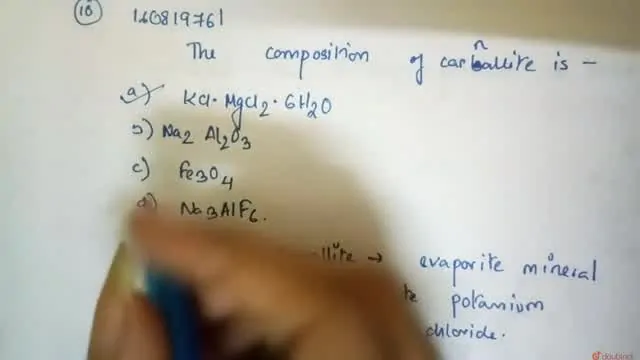 10
160819761
The composition of carnallite is -
a) KCl. MgCl2. 6H2O
b) Na2 Al2O3
c) Fe3O4
d) Na3AlF6.
→ evaporite mineral
potanium
chloride.
doubtnut